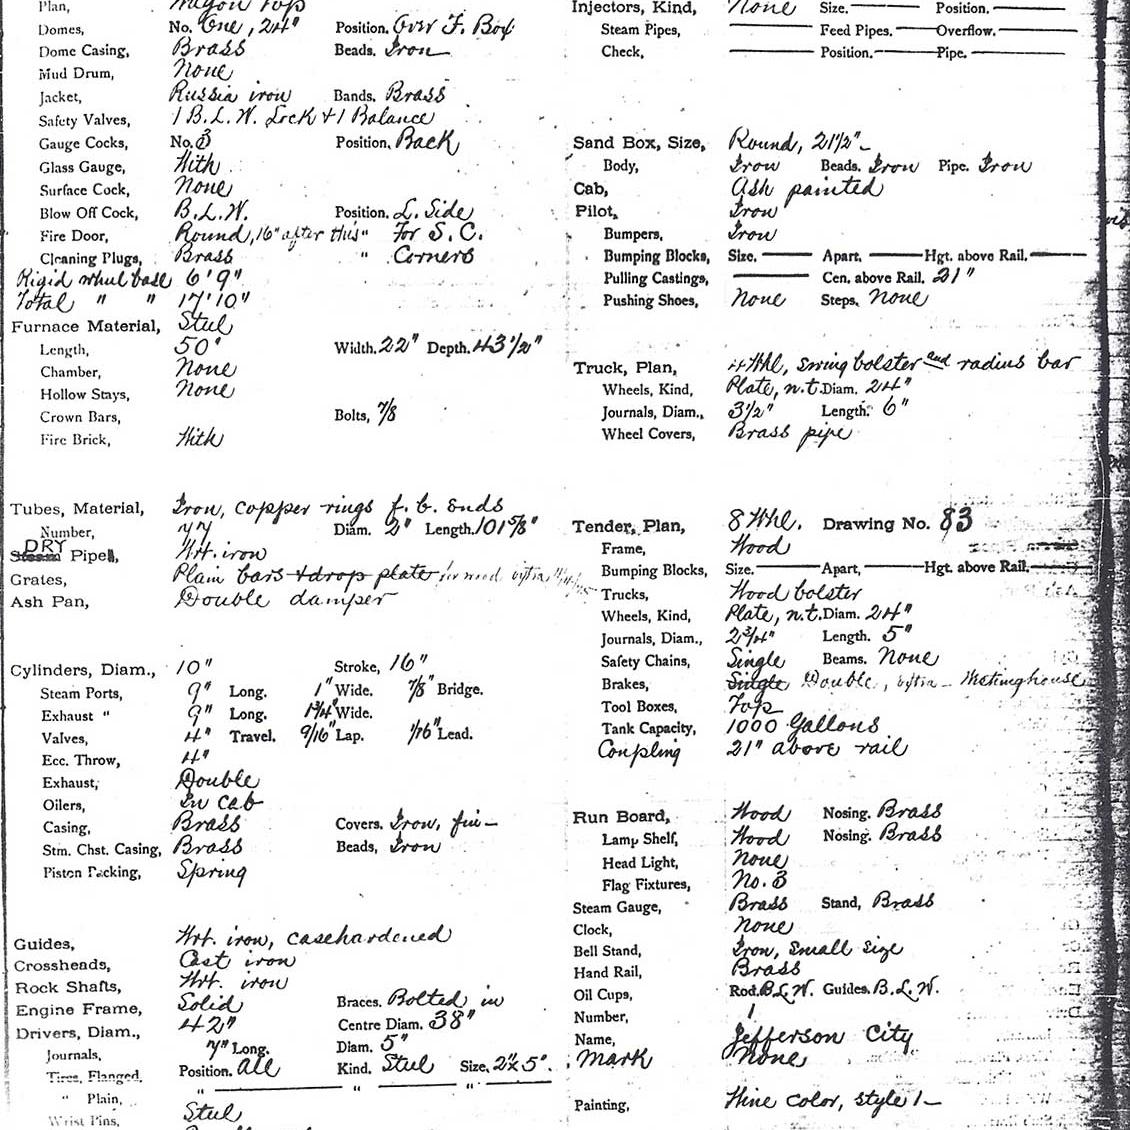 Plan, Wagon Top
Domes, No. One, 24" Position. Over F. Box
Dome Casing, Brass Beads. Iron
Mud Drum, None
Jacket, Russia iron Bands. Brass
Safety Valves, 1 B.L.W. Lock + 1 Balance
Gauge Cocks, No. 3 Position. Back
Glass Gauge, With
Surface Cock, None
Blow Off Cock, B.L.W. Position. L. Side
Fire Door, Round, 16" after this " For S.C.
Cleaning Plugs, Brass " Corners
Rigid wheel base 6'9"
Total " " 17'10"
Furnace Material, Steel
Length, 50" Width. 22" Depth. 43 1/2"
Chamber, None
Hollow Stays, None
Crown Bars, Bolts, 7/8
Fire Brick, With
Tubes, Material, Iron, copper rings f. b. ends
Number, 77 Diam. 2" Length. 101 5/8"
DRY
Steam Pipes, Wrt. iron
Grates, Plain bars + drop plate for wood extra
Ash Pan, Double damper
Cylinders, Diam., 10" Stroke, 16"
Steam Ports, 9" Long. 1" Wide. 7/8" Bridge.
Exhaust " 9" Long. 1 3/4" Wide.
Valves, 4" Travel. 9/16" Lap. 1/16" Lead.
Ecc. Throw, 4"
Exhaust, Double
Oilers, In cab
Casing, Brass Covers. Iron, fin—
Stm. Chst. Casing, Brass Beads, Iron
Piston Packing, Spring
Guides, Wrt. iron, casehardened
Crossheads, Cast iron
Rock Shafts, Wrt. iron
Engine Frame, Solid Braces. Bolted in
Drivers, Diam., 42" Centre Diam. 38"
Journals, 7" Long. Diam. 5"
Tires, Flanged. Position. all Kind. Steel Size. 2" x 5".
" Plain, " " "
Wrist Pins, Steel
Injectors, Kind, None Size. Position.
Steam Pipes, Feed Pipes. Overflow.
Check, Position. Pipe.
Sand Box, Size, Round, 21 1/2"
Body, Iron Beads. Iron Pipe. Iron
Cab, Ash painted
Pilot, Iron
Bumpers, Iron
Bumping Blocks, Size. Apart. Hgt. above Rail.
Pulling Castings, Cen. above Rail. 21"
Pushing Shoes, None Steps. None
Truck, Plan, 4 Whl, swing bolster and radius bar
Wheels, Kind, Plate, n.t. Diam. 24"
Journals, Diam., 3 1/2" Length. 6"
Wheel Covers, Brass pipe
Tender, Plan, 8 Whl. Drawing No. 83
Frame, Wood
Bumping Blocks, Size. Apart, Hgt. above Rail.
Trucks, Wood bolster
Wheels, Kind, Plate, n.t. Diam. 24"
Journals, Diam., 2 3/4" Length. 5"
Safety Chains, Single Beams. None
Brakes, Single Double, extra - Westinghouse
Tool Boxes, Top
Tank Capacity, 1000 Gallons
Coupling 21" above rail
Run Board, Wood Nosing. Brass
Lamp Shelf, Wood Nosing. Brass
Head Light, None
Flag Fixtures, No. 3
Steam Gauge, Brass Stand, Brass
Clock, None
Bell Stand, Iron, small size
Hand Rail, Brass
Oil Cups, Rod. B.L.W. Guides. B.L.W.
Number, 1
Name, Jefferson City
Mark None
Painting, Wine color, style 1—